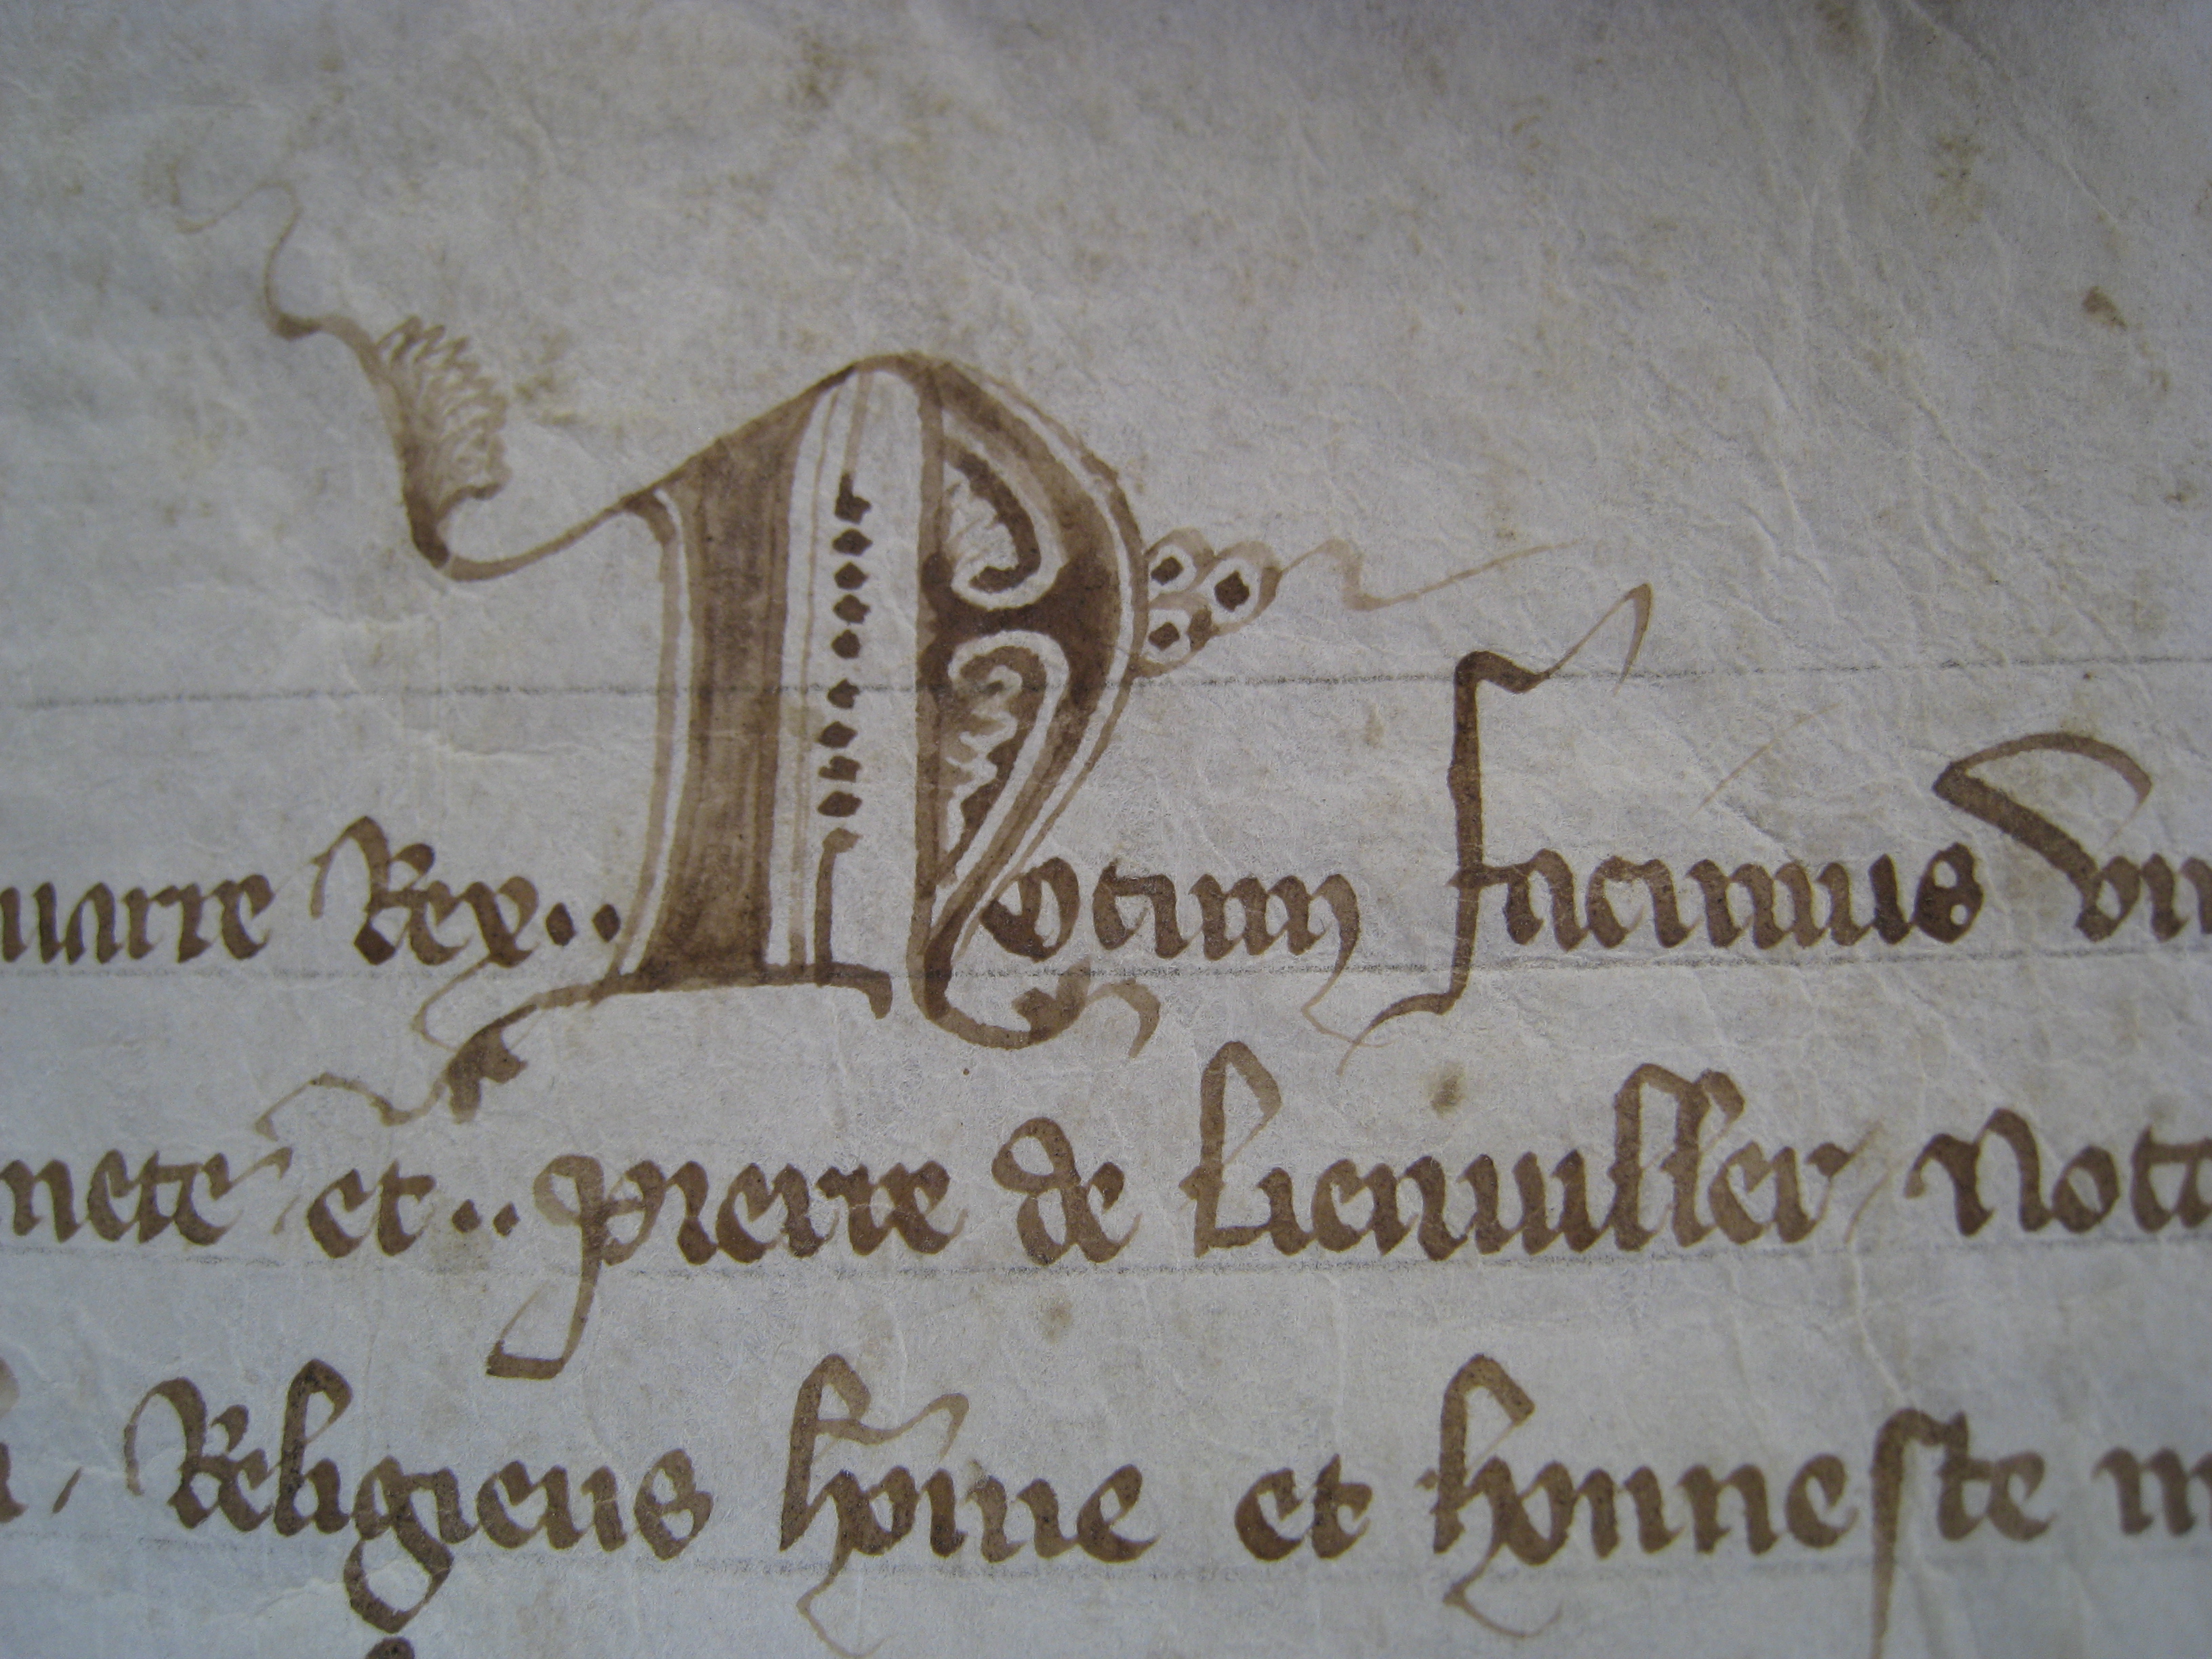 uarre Rex·· Notum facimus vn
nete et·· pierre de Lienuiller Nota
Religieus home et honneste m